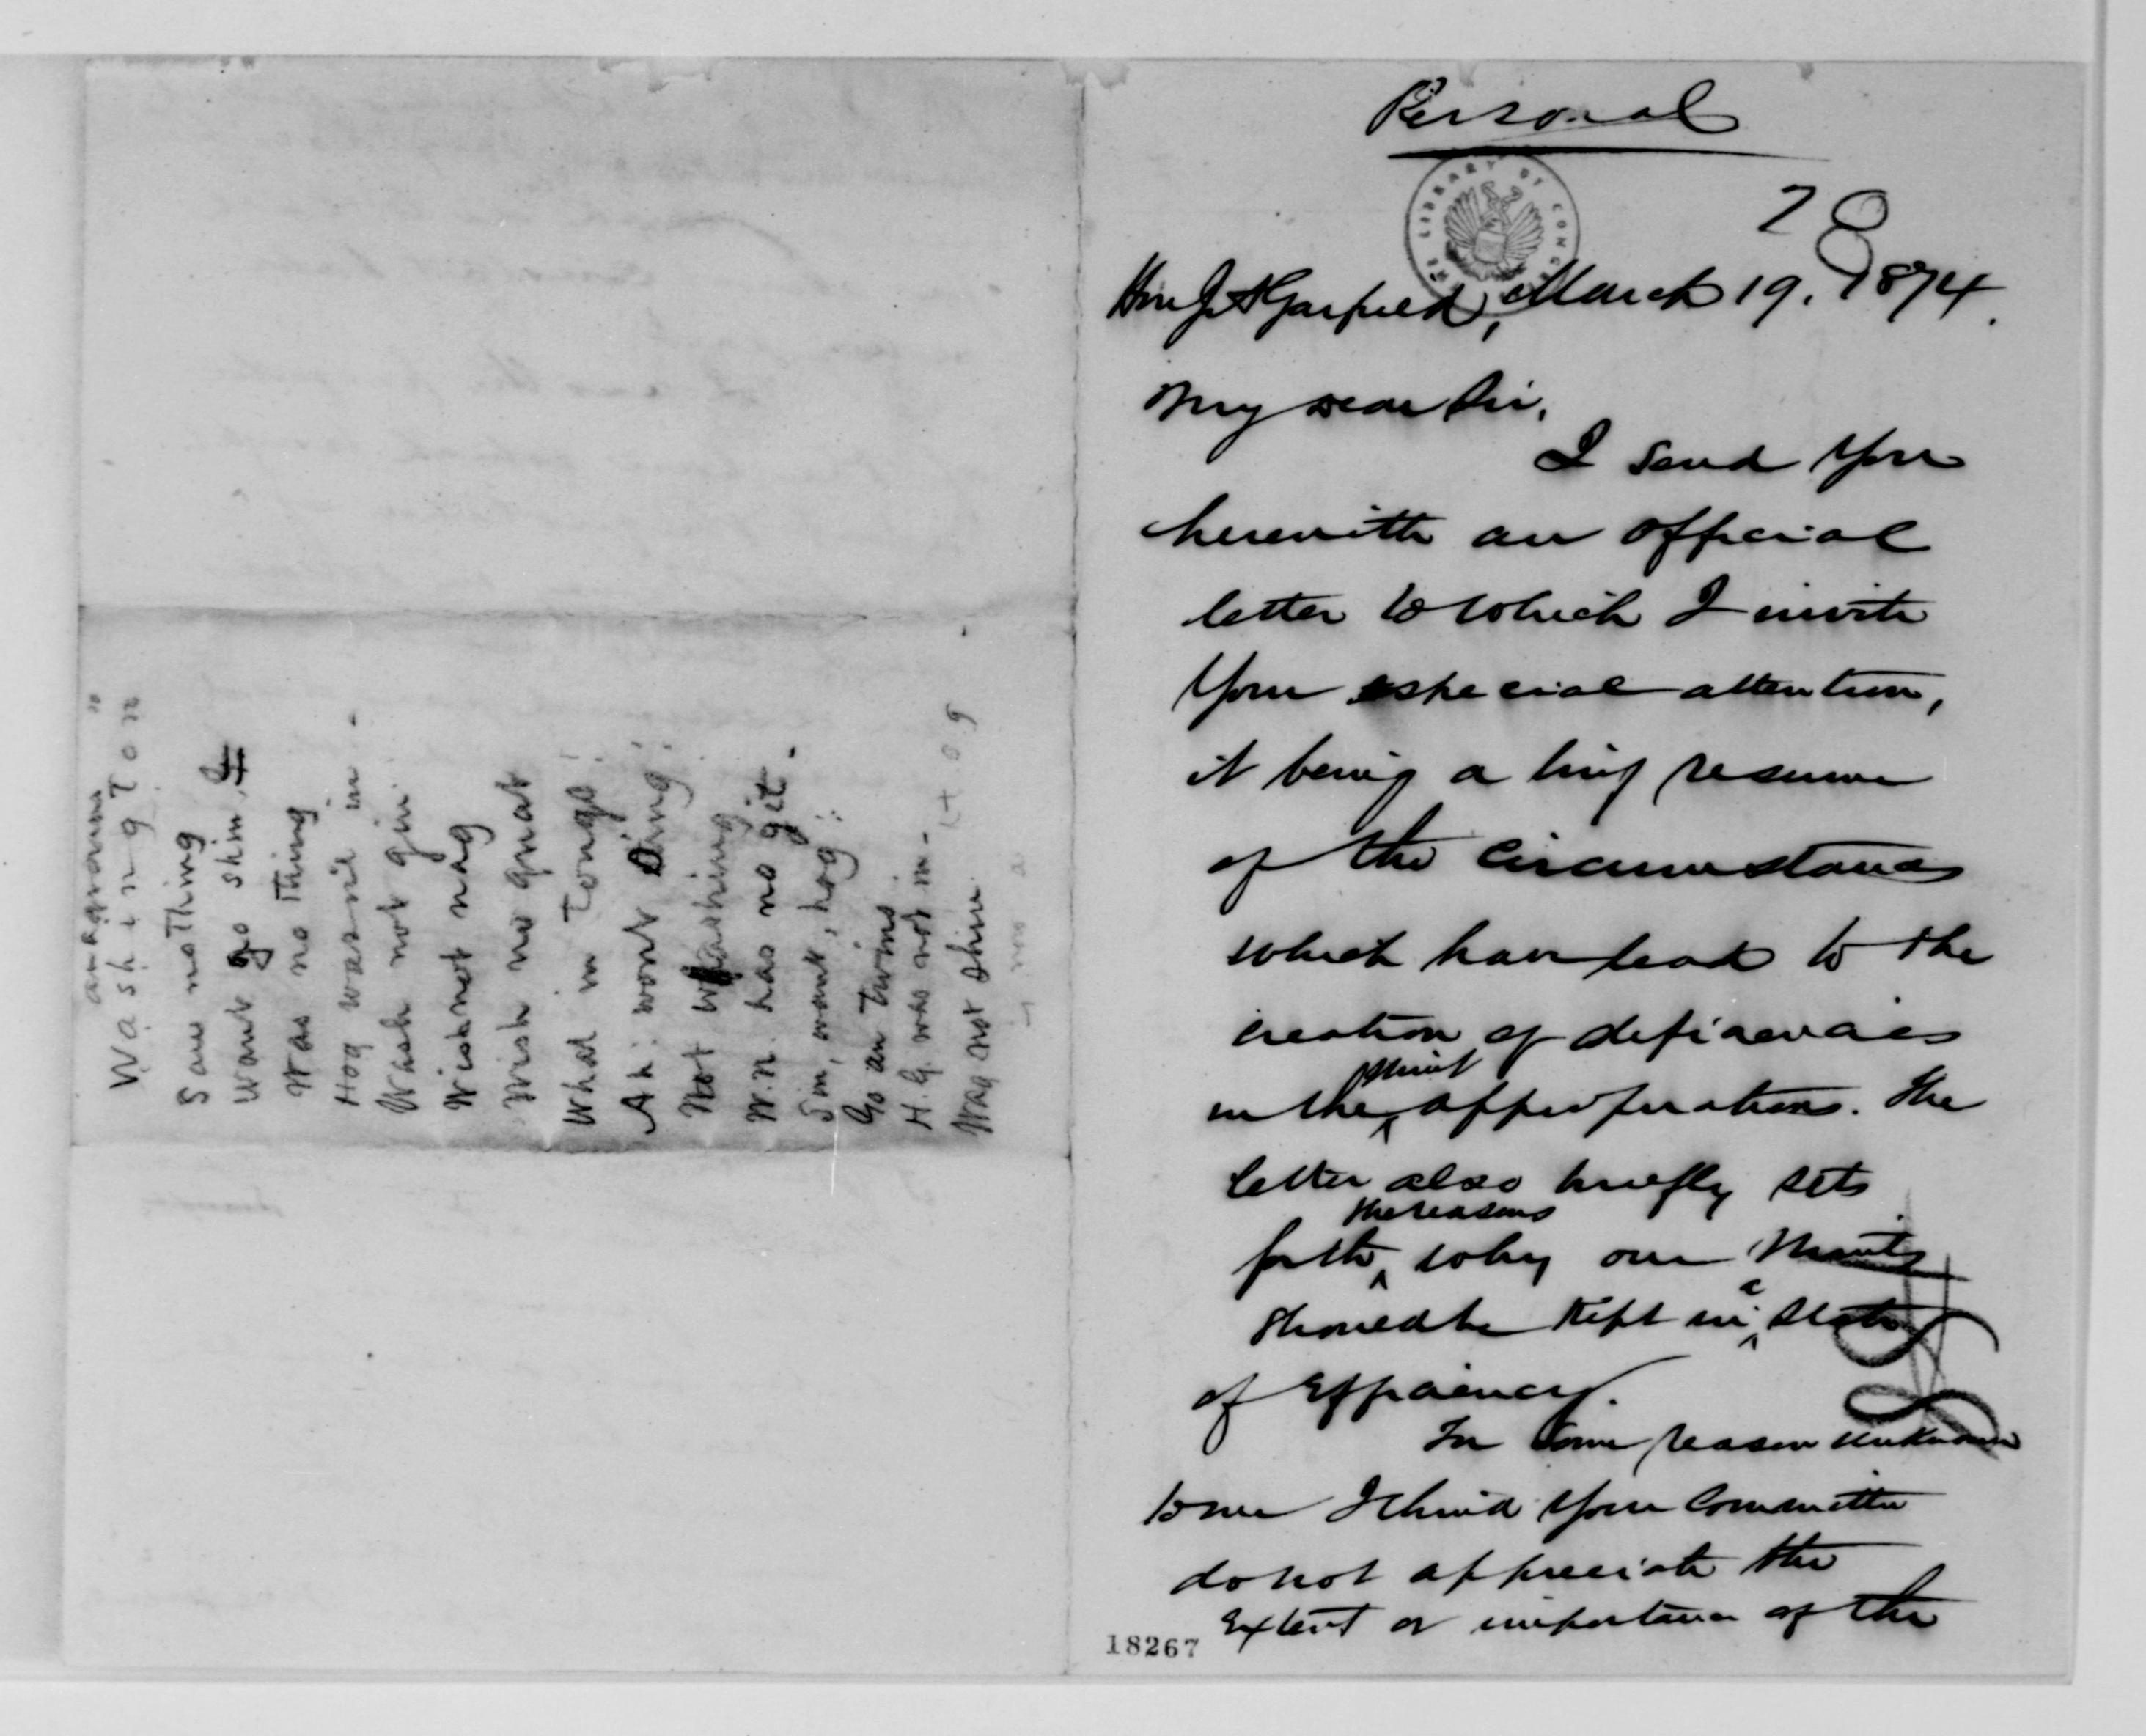 anagrams
Washington
Saw nothing
Want go shin, 
Was no thing
Hog wasn't in -
Wash not gin
Wish not nag
Wish no gnat
What in Tongs!
Ah! wont sing!
Not washing
W.N. has no git -
Sin, want, hog!
Go an Twins
H. G. was not in -
Wag not shin.
Personal
THE LIBRARY OF CONGRESS
28
Hon J A Garfield, March 19. 1874.
My dear Sir,
I send you
herewith an official
letter to which I invite
your especial attention,
it being a brief resume
of the circumstances
which have lead to the
creation of deficiencies
in the mint appropriations. The
letter also briefly sets
forth the reasons why our Mints
should be kept in a state
of efficiency.
For some reason unknown
to me I think your Committee
do not appreciate the
extent or importance of the
18267